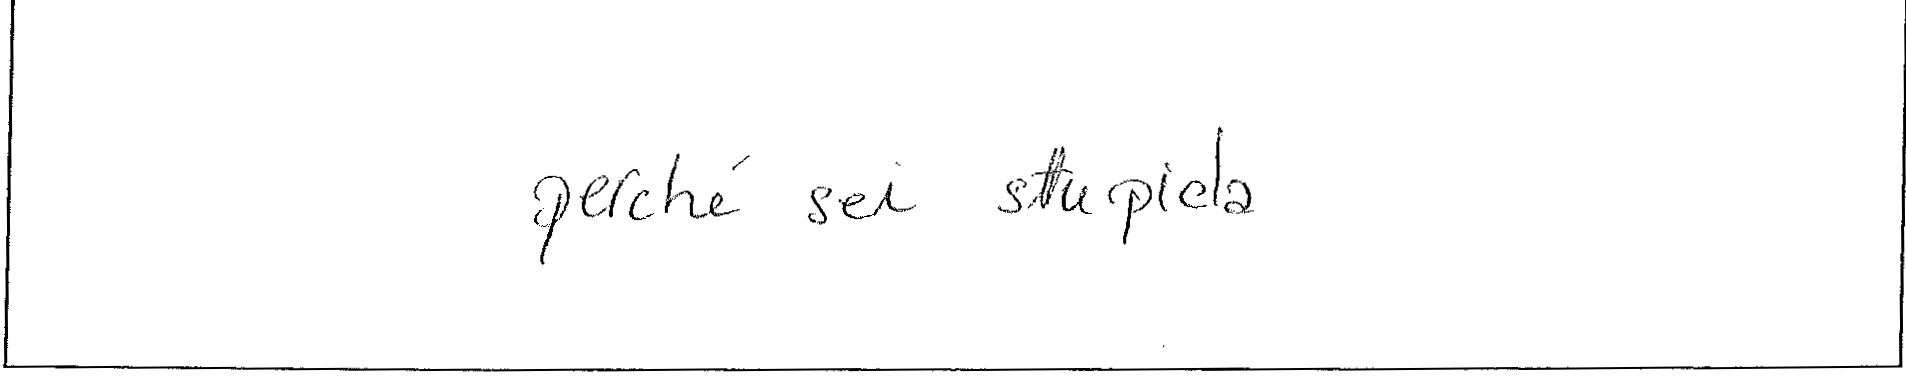 perché sei stupida